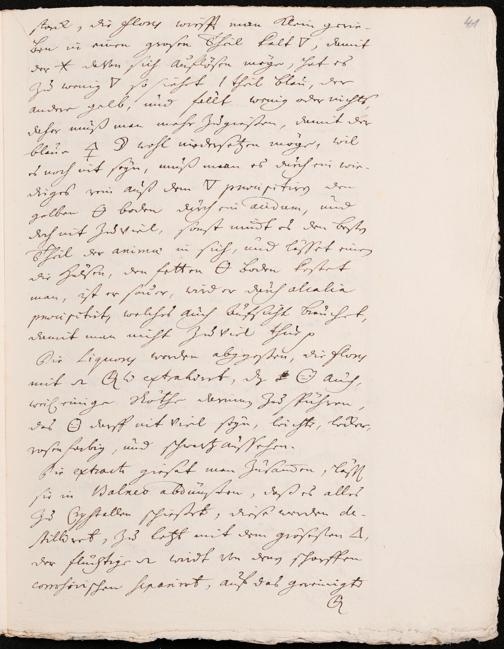 41
stark, die flores wirfft man klein gerie-
ben in einen großen Theil kalt 🜄, damit
der 🞶 davon sich auflösen möge, hat es
zu wenig 🜄 so siehet 1 theil blau, der
andere gelb, und fällt wenig oder nichts,
daher muß man mehr zugießen, damit der
blaue 🜍 wohl niedersetzen möge, wil
es noch nit seyn, muß man es durch ein wie-
driges rein auß dem 🜄 præcipitiren den
gelben 🜔 boden durch ein acidum, und
doch nit zu viel, sonst nimt es den besten
Theil der animæ in sich, und lässet einem
die Hülsen, den fetten 🜔 boden kostet
man, ist er sauer, wird er durch alcalia
præcipitirt, welches auch aufsicht brauchet,
damit man nicht zu viel thue
Die Liquores werden abgegossen, die flores
mit extrahirt, 🜔 auch,
weil einige Röthe darinn zu spühren,
das 🜔 darff nit viel seyn, leicht, locker,
rosenfarbig, und schwartz aussehen.
Die extracta gießet man zusammen, läst
sie in Balneo abdünsten, daß es alles
zu Crystallen schießet, diese werden de-
stilliret, zu letzt mit dem grösesten 🜂,
der flüchtige wird von dem scharffen
corrosivischen separirt, auf das gereinigte